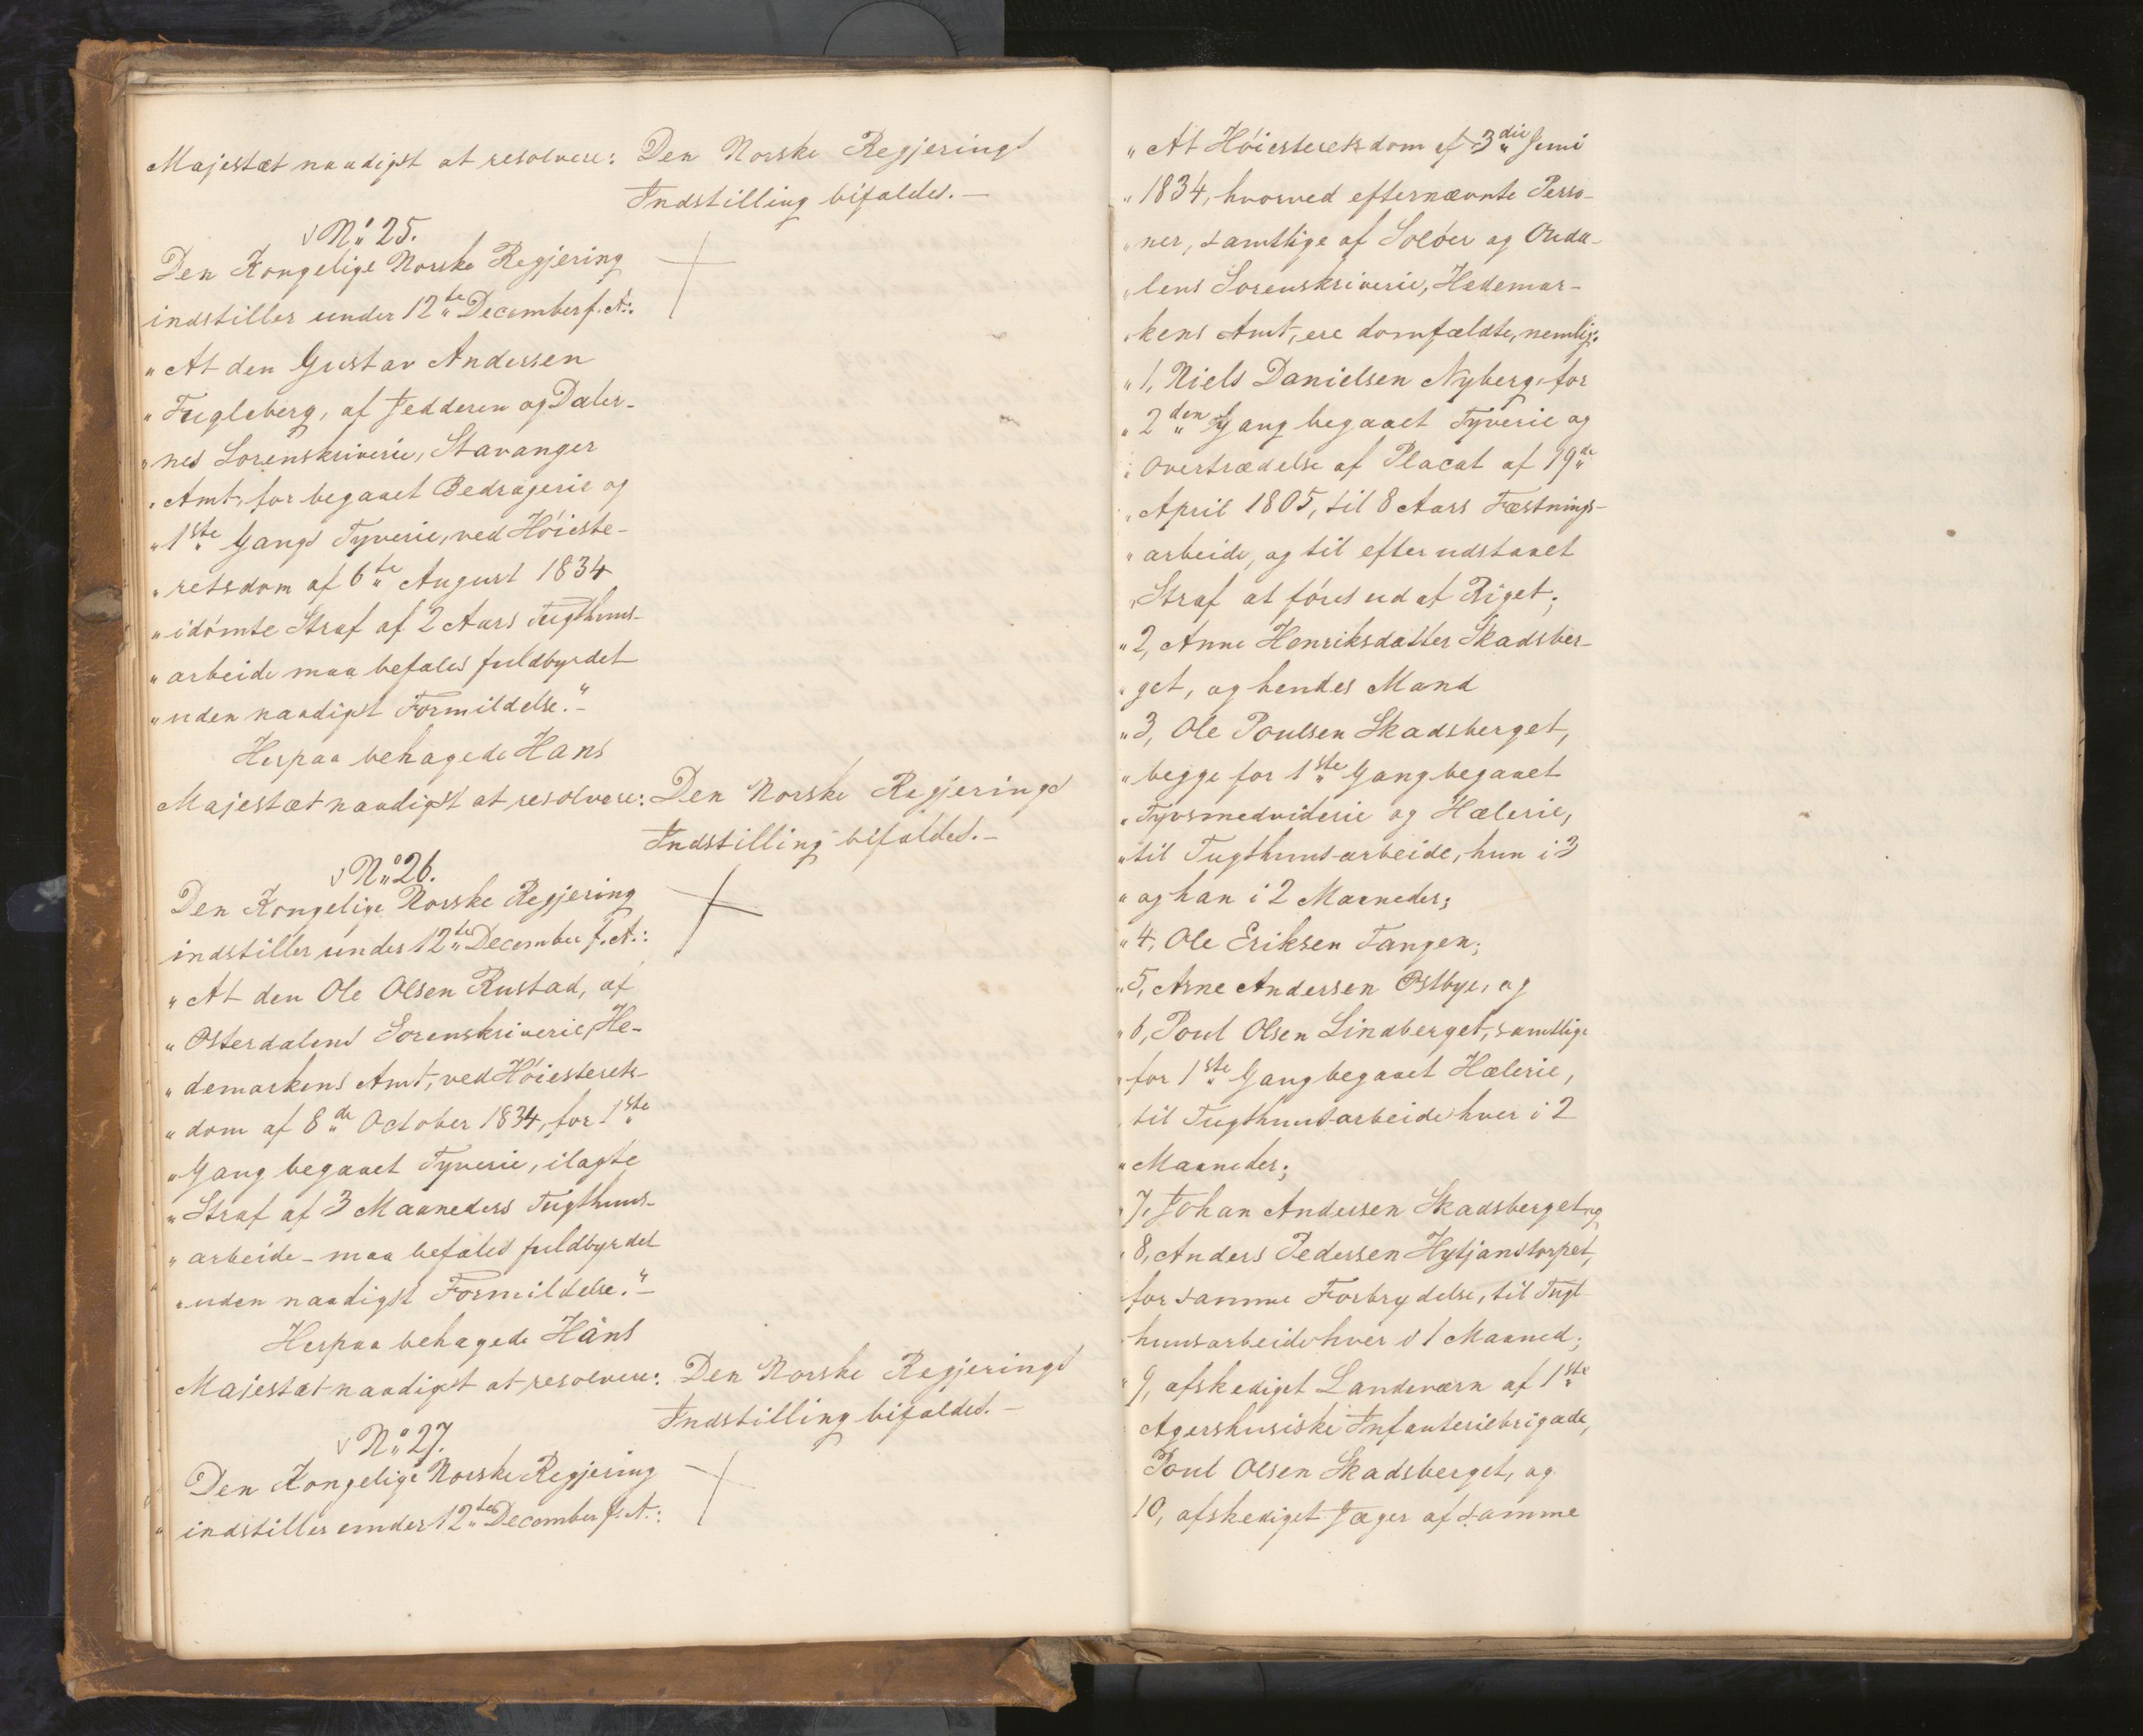 Majestæt naadigst at resolvere: Den Norske Regjerings
Indstilling bifaldes.—
√ No 25.
Den Kongelige Norske Regjering
indstiller under 12te December f. A.:
„At den Gustav Andersen
„Fugleberg, af Jedderen og Daler-
„nes Sorenskriverie, Stavanger
„Amt, for begaaet Bedragerie og
„1ste Gangs Tyverie, ved Høieste-
„retsdom af 6te August 1834
„idømte Straf af 2 Aars Tugthuus-
„arbeide maa befales fuldbyrdet
„uden naadigst Formildelse.“—
Herpaa behagede Hans
Majestæt naadigst at resolvere: Den Norske Regjerings
Indstilling bifaldes.—
√ No 26.
Den Kongelige Norske Regjering
indstiller under 12te December f. A.:
„At den Ole Olsen Rustad, af
„Østerdalens Sorenskriverie, He-
„demarkens Amt, ved Høiesterets-
„dom af 8de October 1834, for 1ste
„Gang begaaet Tyverie, ilagte
„Straf af 3 Maaneders Tugthuus-
„arbeide - maa befales fuldbyrdet
„uden naadigst Formildelse.“—
Herpaa behagede Hans
Majestæt naadigst at resolvere: Den Norske Regjerings
Indstilling bifaldes.—
√ No 27.
Den Kongelige Norske Regjering
indstiller under 12te December f. A.:
„At Høiesteretsdom af 3die Juni
„1834, hvorved efternævnte Perso-
„ner, samtlige af Soløer og Ouda-
„lens Sorenskriverie, Hedemar-
„kens Amt, ere domfældte, nemlig:
„1, Niels Danielsen Nyberg, for
„2den Gang begaaet Tyverie og
„Overtrædelse af Placat af 19de
„April 1805, til 8 Aars Fæstnings-
„arbeide, og til efter udstaaet
„Straf at føres ud af Riget;
„2, Anne Henriksdatter Skadsber-
„get, og hendes Mand
„3, Ole Poulsen Skadsberget,
„begge for 1ste Gang begaaet
„Tyvsmedviderie og Hælerie,
„til Tugthuusarbeide, hun i 3
„og han i 2 Maaneder;
„4, Ole Eriksen Tangen;
„5, Arne Andersen Østbye, og
„6, Poul Olsen Lindberget, samtlige
„for 1ste Gang begaaet Hælerie,
„til Tugthuusarbeide hver i 2
„Maaneder;
„7, Johan Andersen Skadsberget og
„8, Anders Pedersen Hytjanstorpet,
„for samme Forbrydelse, til Tugt-
„huusarbeide hver i 1 Maaned;
„9, afskediget Landeværn af 1ste
„Agershusiske Infanteriebrigade,
Poul Olsen Skadsberget, og
10, afskediget Jæger af samme